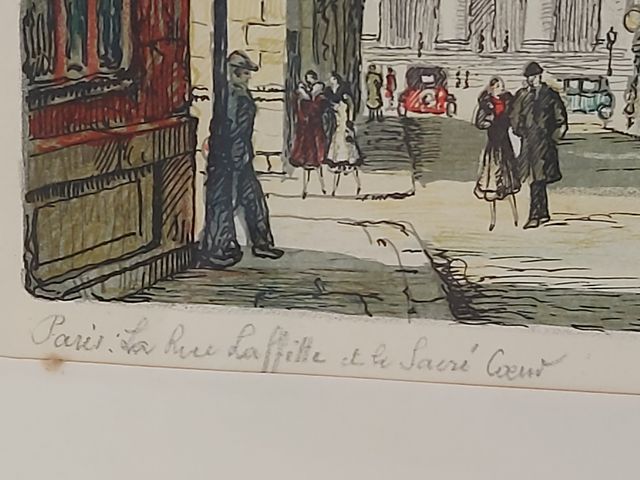 Paris: La Rue Laffitte et le Sacré Cœur